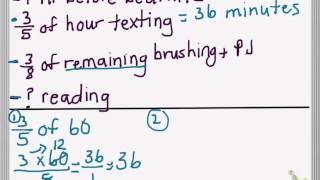 - 3/5 of hour texting = 36 minutes
- 3/8 of remaining brushing + PJ
- ? reading
① 3/5 of 60 ②
12
3 × 60 = 36 = 36